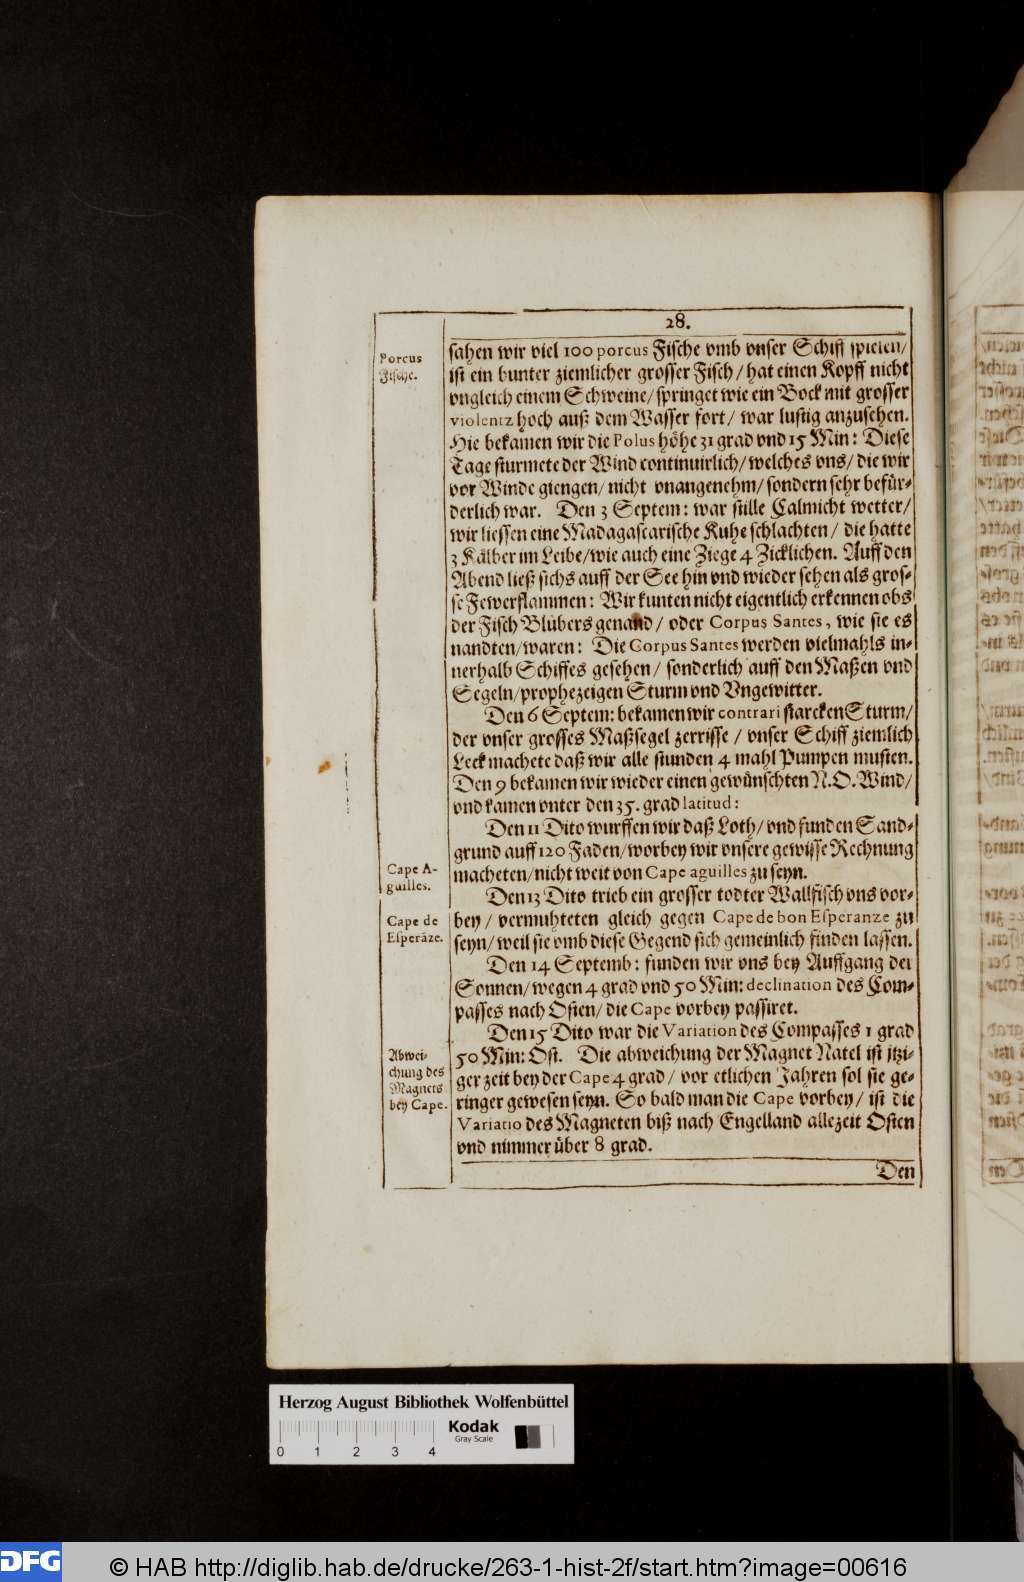 28.
Porcus
Fische.
sahen wir viel 100 porcus Fische vmb vnser Schiff spielen/
ist ein bunter ziemlicher grosser Fisch / hat einen Kopff nicht
vngleich einem Schweine/ springet wie ein Bock mit grosser
violentz hoch auß dem Wasser fort/ war lustig anzusehen.
Hie bekamen wir die Polus höhe 31 grad vnd 15 Min: Diese
Tage sturmete der Wind continuirlich/ welches vns/ die wir
vor Winde giengen/ nicht vnangenehm/ sondern sehr befür-
derlich war. Den 3 Septem: war stille Calmicht wetter/
wir liessen eine Madagascarische Kuhe schlachten / die hatte
3 Kälber im Leibe/ wie auch eine Ziege 4 Zicklichen. Auff den
Abend ließ sichs auff der See hin vnd wieder sehen als gros-
se Fewerflammen: Wir kunten nicht eigentlich erkennen obs
der Fisch Blübers genand/ oder Corpus Santes, wie sie es
nandten/ waren: Die Corpus Santes werden vielmahls in-
nerhalb Schiffes gesehen/ sonderlich auff den Maßen vnd
Segeln/ prophezeigen Sturm vnd Vngewitter.
Den 6 Septem: bekamen wir contrari starcken Sturm/
der vnser grosses Maßsegel zerrisse / vnser Schiff ziemlich
Leck machete daß wir alle stunden 4 mahl Pumpen musten.
Den 9 bekamen wir wieder einen gewünschten N.O. Wind/
vnd kamen vnter den 35. grad latitud:
Den 11 Dito wurffen wir daß Loth/ vnd funden Sand-
grund auff 120 Faden/ worbey wir vnsere gewisse Rechnung
Cape A-
guilles.
macheten/ nicht weit von Cape aguilles zu seyn.
Den 13 Dito trieb ein grosser todter Wallfisch vns vor-
Cape de
Esperãze.
bey/ vermuhteten gleich gegen Cape de bon Esperanze zu
seyn/ weil sie vmb diese Gegend sich gemeinlich finden lassen.
Den 14 Septemb: funden wir vns bey Auffgang der
Sonnen/ wegen 4 grad vnd 50 Min: declination des Com-
passes nach Osten/ die Cape vorbey passiret.
Den 15 Dito war die Variation des Compasses 1 grad
Abwei-
chung des
Magnets
bey Cape.
50 Min: Ost. Die abweichung der Magnet Natel ist jtzi-
ger zeit bey der Cape 4 grad/ vor etlichen Jahren sol sie ge-
ringer gewesen seyn. So bald man die Cape vorbey/ ist die
Variatio des Magneten biß nach Engelland allezeit Osten
vnd nimmer über 8 grad.
Den
Herzog August Bibliothek Wolfenbüttel
0 1 2 3 4
Kodak
Gray Scale
DFG
© HAB http://diglib.hab.de/drucke/263-1-hist-2f/start.htm?image=00616